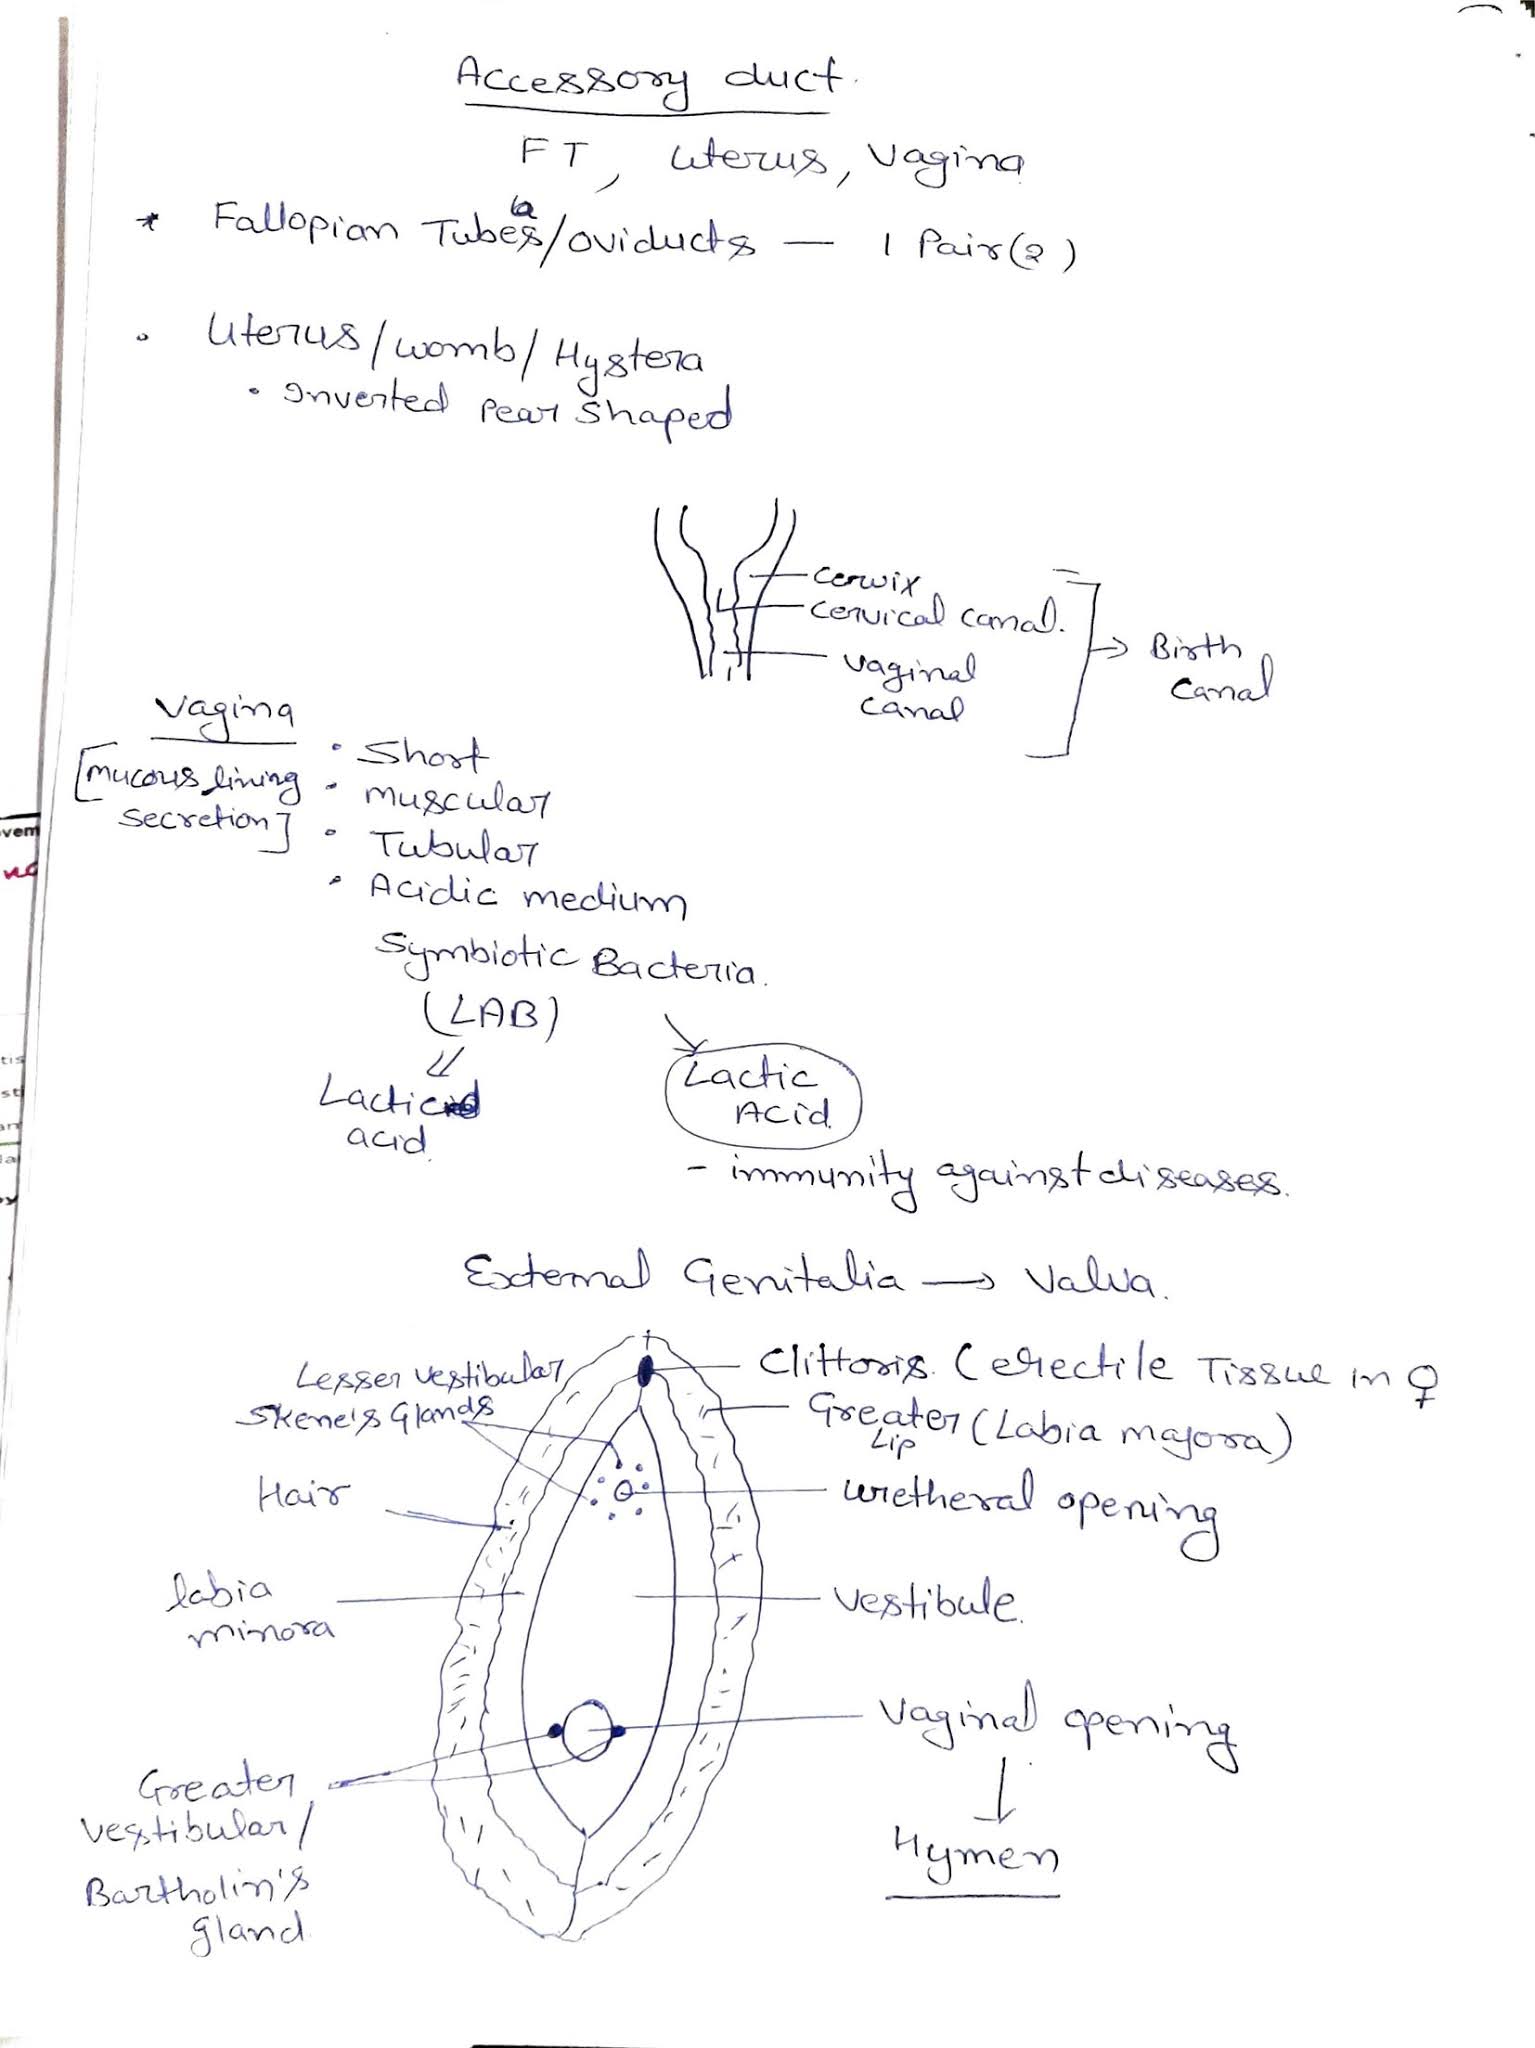 Accessory duct.
FT, Uterus, Vagina
* Fallopian Tubes/oviducts — 1 Pair(2)
• Uterus/womb/Hystera
• Inverted Pear Shaped
Cervix
Cervical Canal.
Vaginal
Canal
→ Birth
Canal
Vagina
[Mucous lining
Secretion]
• Short
• Muscular
• Tubular
• Acidic medium
Symbiotic Bacteria.
(LAB)
Lactic
acid
Lactic
Acid
- immunity against diseases.
External Genitalia → Valva.
Lesser Vestibular
Skene's Glands
Hair
labia
minora
Greater
Vestibular/
Bartholin's
gland
Clittoris. (erectile Tissue in ♀
Greater (Labia majora)
Lip
Uretheral opening
Vestibule.
Vaginal opening
↓
Hymen